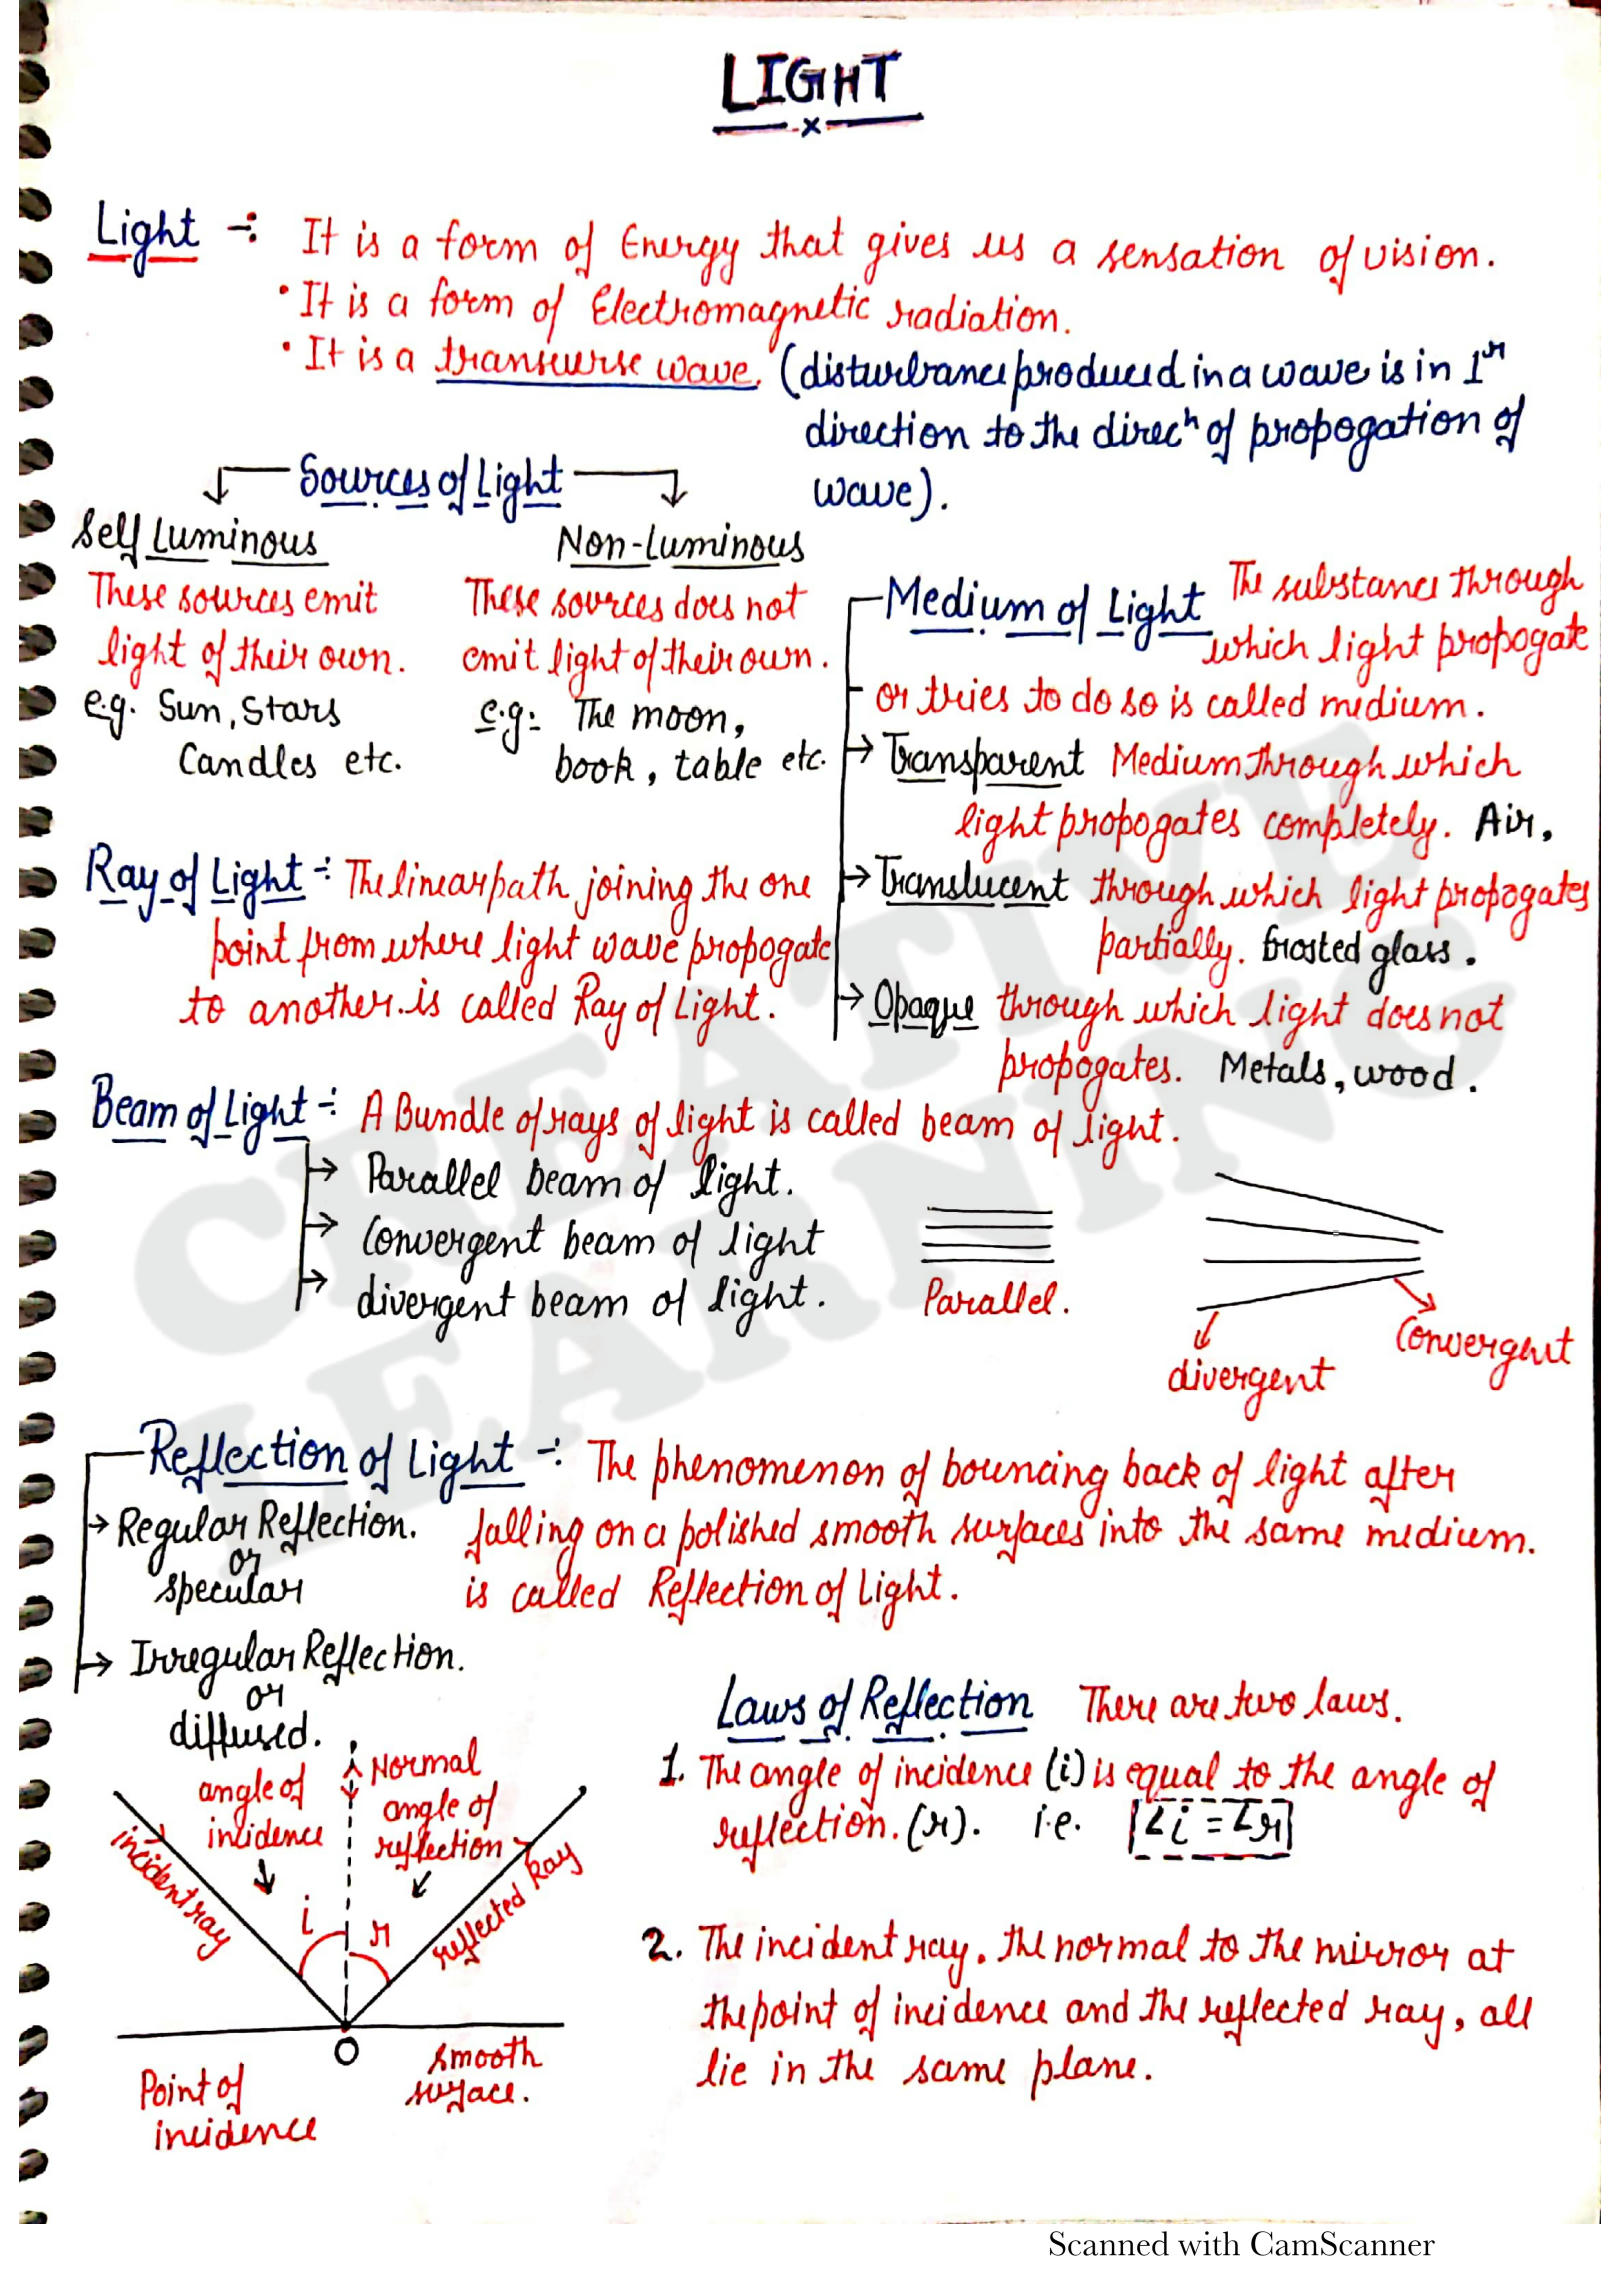 LIGHT
Light -: It is a form of Energy that gives us a sensation of vision.
• It is a form of Electromagnetic radiation.
• It is a transverse wave. (disturbance produced in a wave is in 1r
direction to the direcn of propogation of
wave).
Sources of Light
Self Luminous
These sources emit
light of their own.
e.g. Sun, Stars
Candles etc.
Non-Luminous
These sources does not
emit light of their own.
e.g:- The moon,
book, table etc.
Medium of Light The substance through
which light propogate
or tries to do so is called medium.
→ Transparent Medium through which
light propogates completely. Air,
→ Translucent through which light propogates
partially. frosted glass.
→ Opaque through which light does not
propogates. Metals, wood.
Ray of Light -: The linear path joining the one
point from where light wave propogate
to another is called Ray of Light.
Beam of Light -: A Bundle of rays of light is called beam of light.
→ Parallel beam of light.
→ Convergent beam of light
→ divergent beam of light.
Parallel.
divergent
Convergent
Reflection of Light -: The phenomenon of bouncing back of light after
falling on a polished smooth surfaces into the same medium.
is called Reflection of Light.
→ Regular Reflection.
or
specular
→ Irregular Reflection.
or
diffused.
angle of
incidence
Normal
angle of
reflection
incident ray
reflected Ray
i
r
O
Point of
incidence
smooth
surface.
Laws of Reflection There are two laws.
1. The angle of incidence (i) is equal to the angle of
reflection. (r). i.e. ∠i = ∠r
2. The incident ray. the normal to the mirror at
the point of incidence and the reflected ray, all
lie in the same plane.
CREATIVE
LEARNING
Scanned with CamScanner